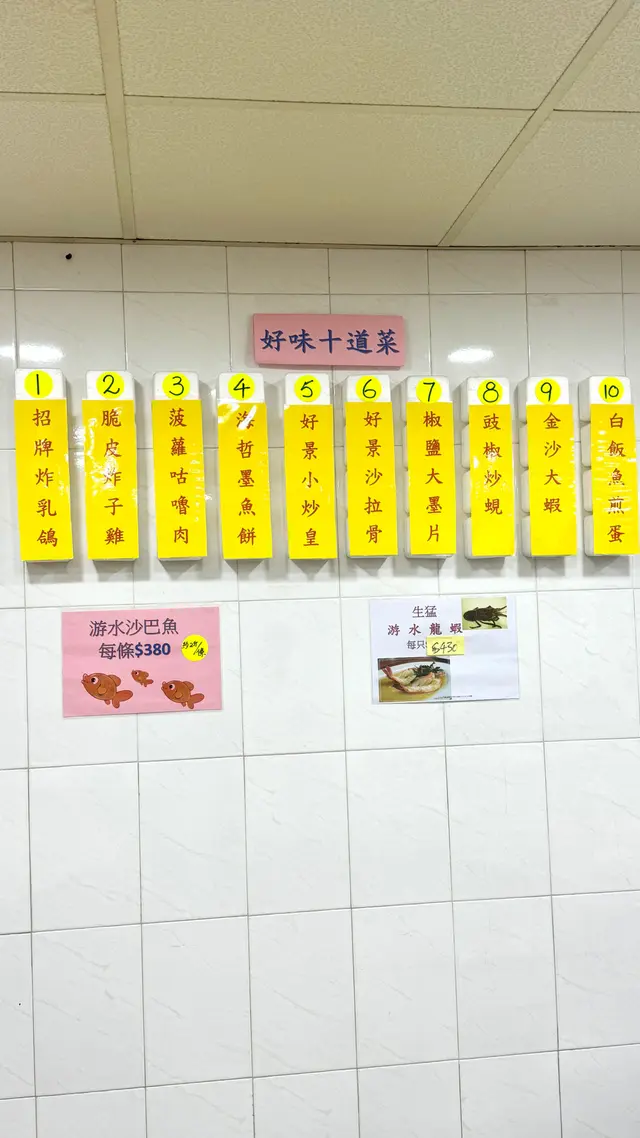 好味十道菜
1
招牌炸乳鴿
2
脆皮炸子雞
3
菠蘿咕嚕肉
4
海哲墨魚餅
5
好景小炒皇
6
好景沙拉骨
7
椒鹽大墨片
8
豉椒炒蜆
9
金沙大蝦
10
白飯魚煎蛋
游水沙巴魚
每條$380
生猛
游水龍蝦
每只